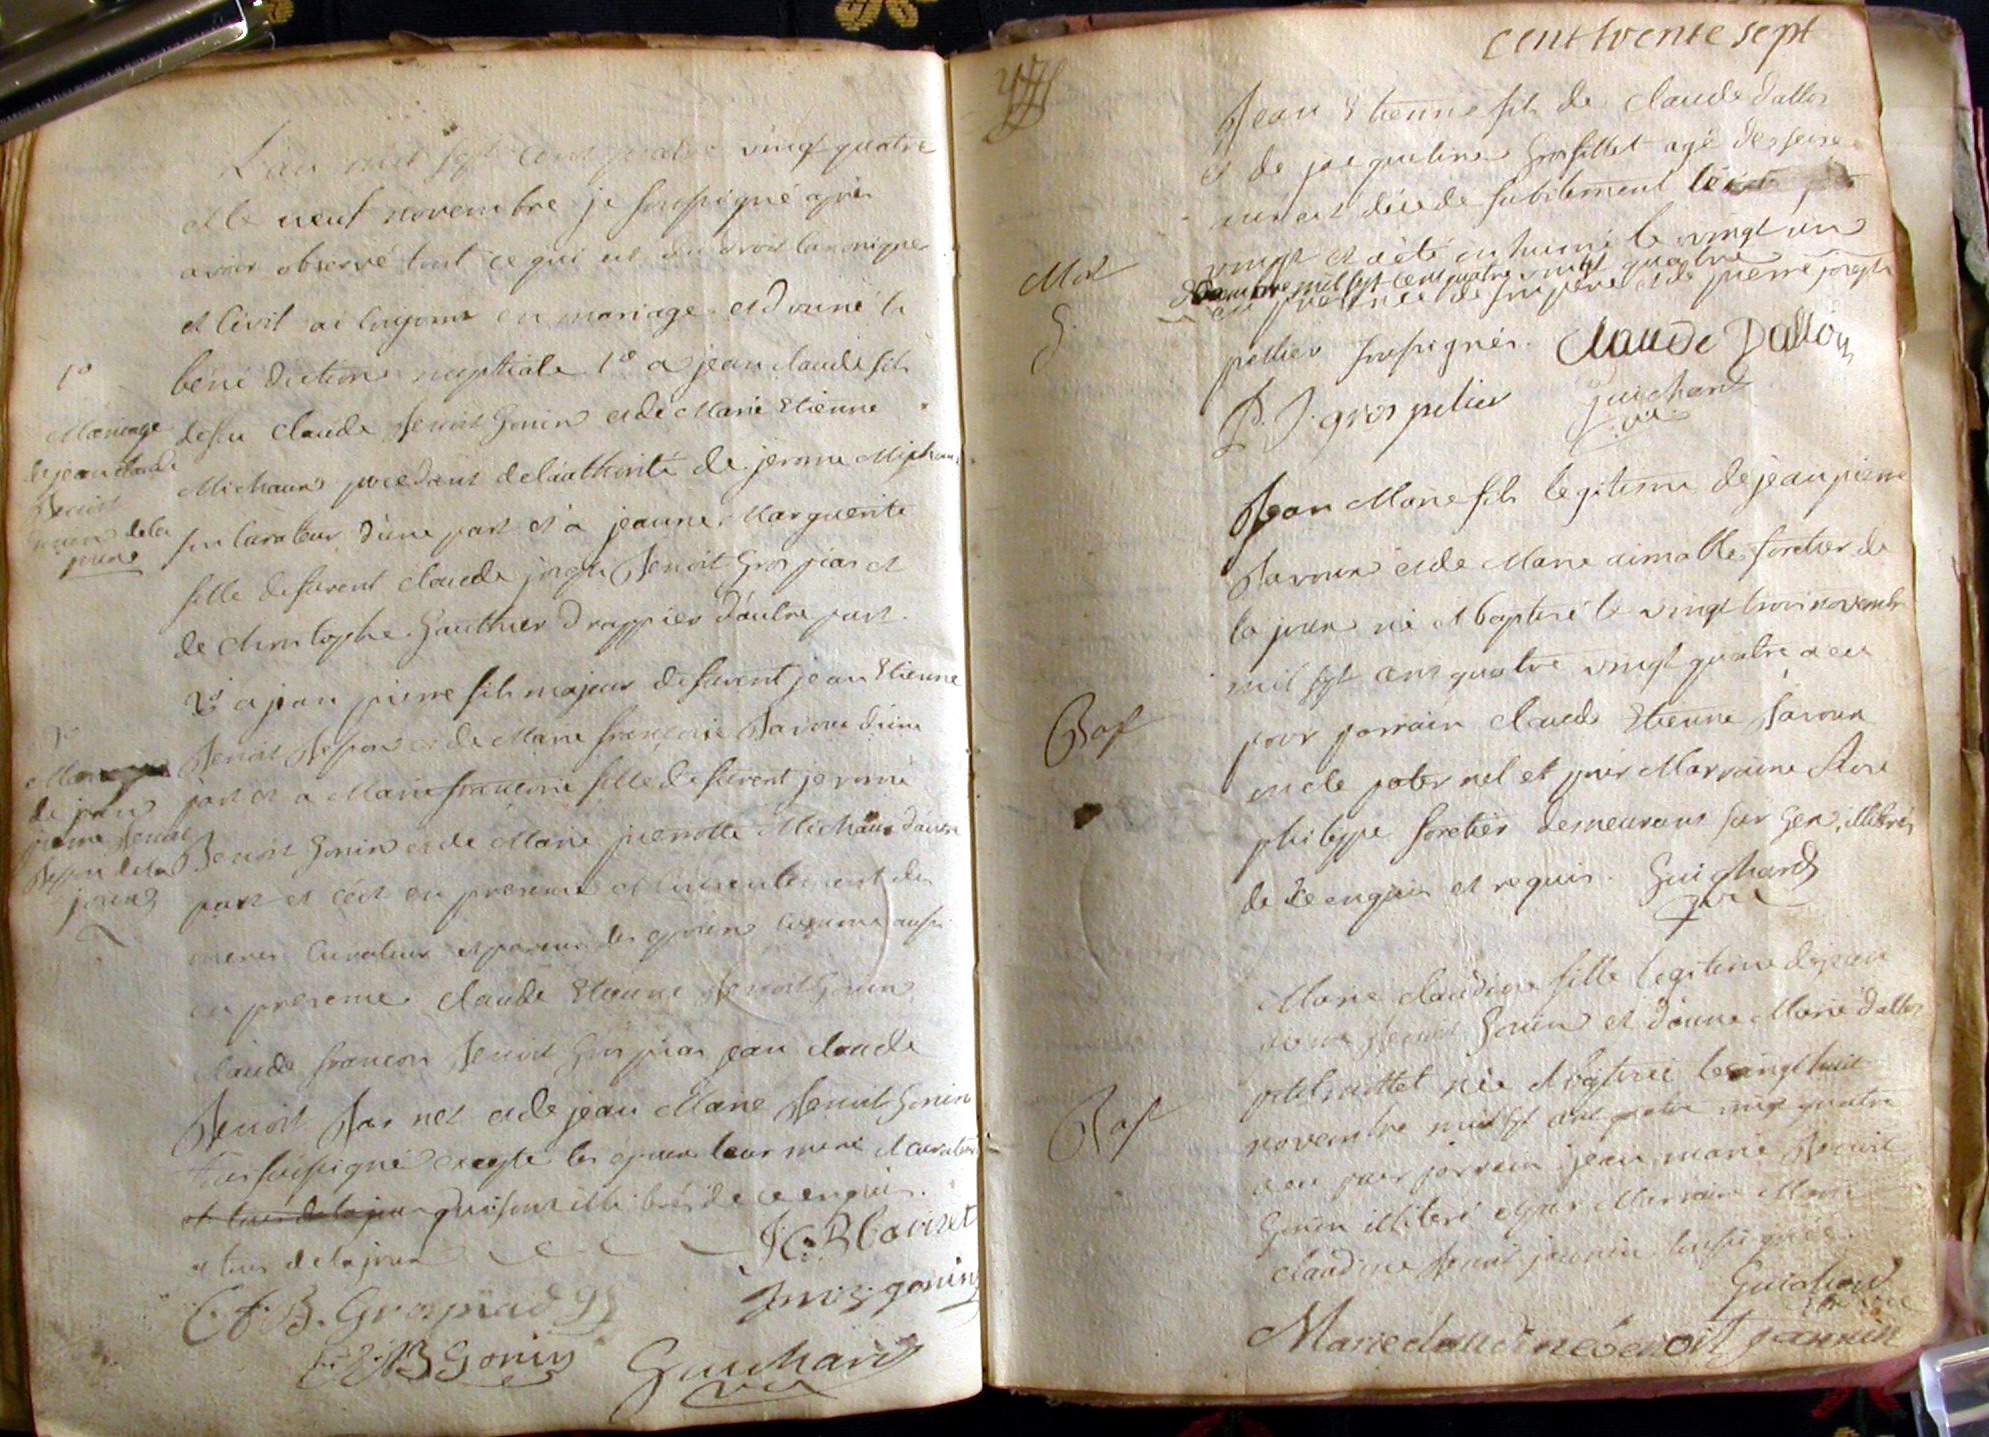 L'an mil sept cent quatre vingt quatre
et le neuf novembre je soussigné après
avoir observé tout ce qui est du droit canonique
et civil ai conjoint en mariage et donné la
bénédiction nuptiale 1° a jean claude fils
1°
Mariage
de jean claude
Benoit
gonin de la
joux
de feu claude Benoit Gonin et de Marie Etienne
Michaux procedant de l'authorité de jerome Michaux
son curateur d'une part et a jeanne Marguerite
fille de furent claude joseph Benoit Gros piar et
de christophe Gauthier Drappier d'autre part.
2° a jean pierre fils majeur de furent jean Etienne
2°
Mariage
de jean
pierre Benoit
de la
joux
Benoit et de Marie françoise d'une
part et a Marie françoise fille de furent jerome
Benoit Gonin et de Marie pierrotte Michaux d'autre
part et c'est en presence et consentement des
meres curateur et parens des epoux comme aussi
en presence claude Etienne Benoit Gonin
claude françois Benoit Gros piar jean claude
Benoit et de jean Marie Benoit Gonin
tous soussigné excepté les epoux leur mere et curateur
et tous de la joux qui sont illiterés de ce enquis.
et tous de la joux
C. F. B. Grospiad
B Gonin
gonin
Guichard
curé
cent trente sept
Jean Etienne fils de claude Dalloz
et de jacqueline Grosfillet agé de seize
ans est décédé subitement
vingt et a été enhumé le vingt un
Mort
novembre mil sept cent quatre vingt quatre
en presence de son père et de pierre joseph
pellier soussignés. Claude Dalloz
P. J. gros pelier Guichard
curé
Jean Marie fils legitime de jean pierre
et de Marie aimable foretier de
la joux né et baptisé le vingt trois novembre
mil sept cent quatre vingt quatre a eu
Bap
pour parrain claude Etienne
oncle paternel et pour Marraine
philippe foretier demeurant sur Gex, illiterés
de ce enquis et requis. Guichard
curé
Marie claudine fille legitime de jean
Benoit Gonin et d'anne Marie Dalloz
née et baptisée le vingt huit
Bap
novembre mil sept cent quatre vingt quatre
a eu pour parrain jean marie Benoit
Gonin illiteré et pour Marraine Marie
claudine Benoit jannin soussignée.
Guichard
curé
Marie claudine benoit jannin